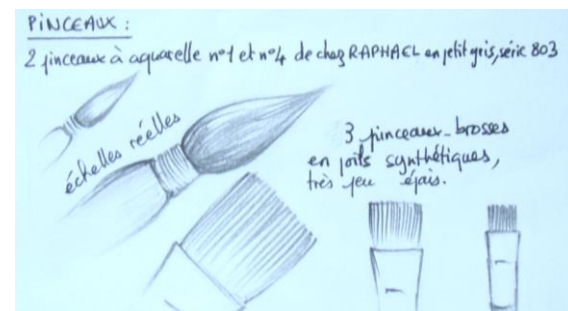 PINCEAUX :
2 pinceaux à aquarelle n°1 et n°4 de chez RAPHAEL en petit gris, série 803
échelles réelles
3 pinceaux-brosses
en poils synthétiques,
très peu épais.